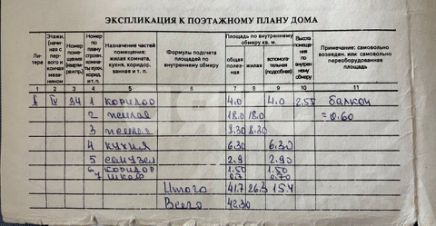 ЭКСПЛИКАЦИЯ К ПОЭТАЖНОМУ ПЛАНУ ДОМА
Литера
Этажи, (начиная с первого и кончая мезонином
Номер помещения
Номер по плану
Назначение частей помещения: жилая комната, кухня, коридор, ванная и т. п.
Формулы подсчета площадей по внутреннему обмеру
Площадь по внутреннему обмеру кв. м.
общая полезная
жилая
вспомогательная (подробнее)
Высота помещения по внутреннему обмеру
Примечание: самовольно возведен. или самовольно переоборудованная площадь
1 2 3 4 5 6 7 8 9 10 11
IV 34 1 коридор 4.0 4.0 2.55 балкон
2 жилая 18.0 18.0 = 0.60
3 жилая 8.30 8.30
4 кухня 6.30 6.30
5 санузел 2.9 2.90
6 коридор 1.50 1.50
7 шкаф 0.7 0.70
Итого 41.7 26.3 15.4
Всего 42.30